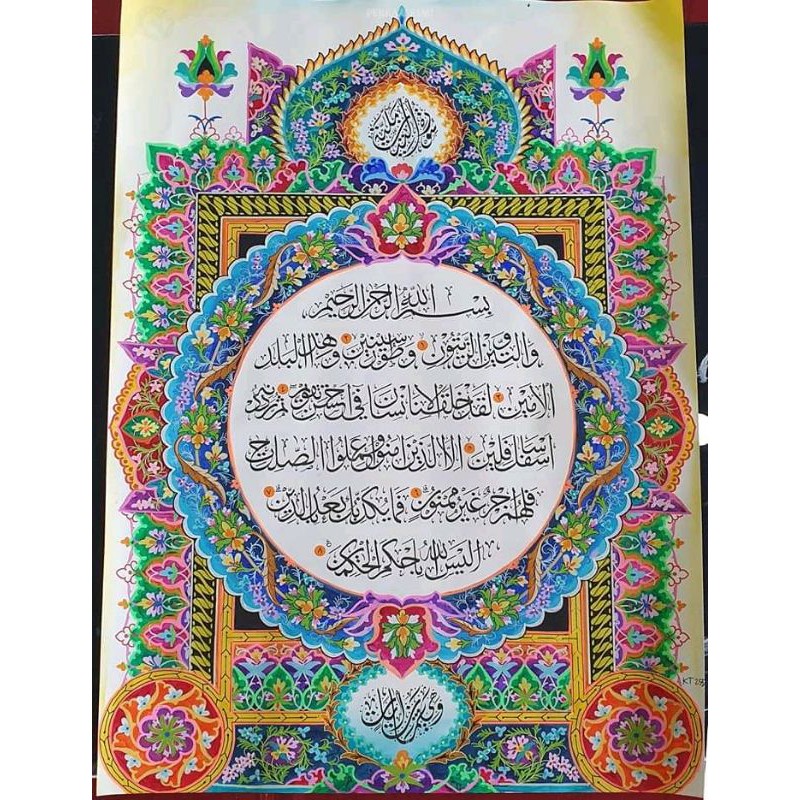 سورة التين مكية
بسم الله الرحمن الرحيم
والتين والزيتون ١ وطور سينين ٢ وهذا البلد
الامين ٣ لقد خلقنا الانسان في احسن تقويم ٤ ثم رددنه
اسفل سافلين ٥ الا الذين امنوا وعملوا الصلحت
فلهم اجر غير ممنون ٦ فما يكذبك بعد بالدين ٧
اليس الله باحكم الحكمين ٨